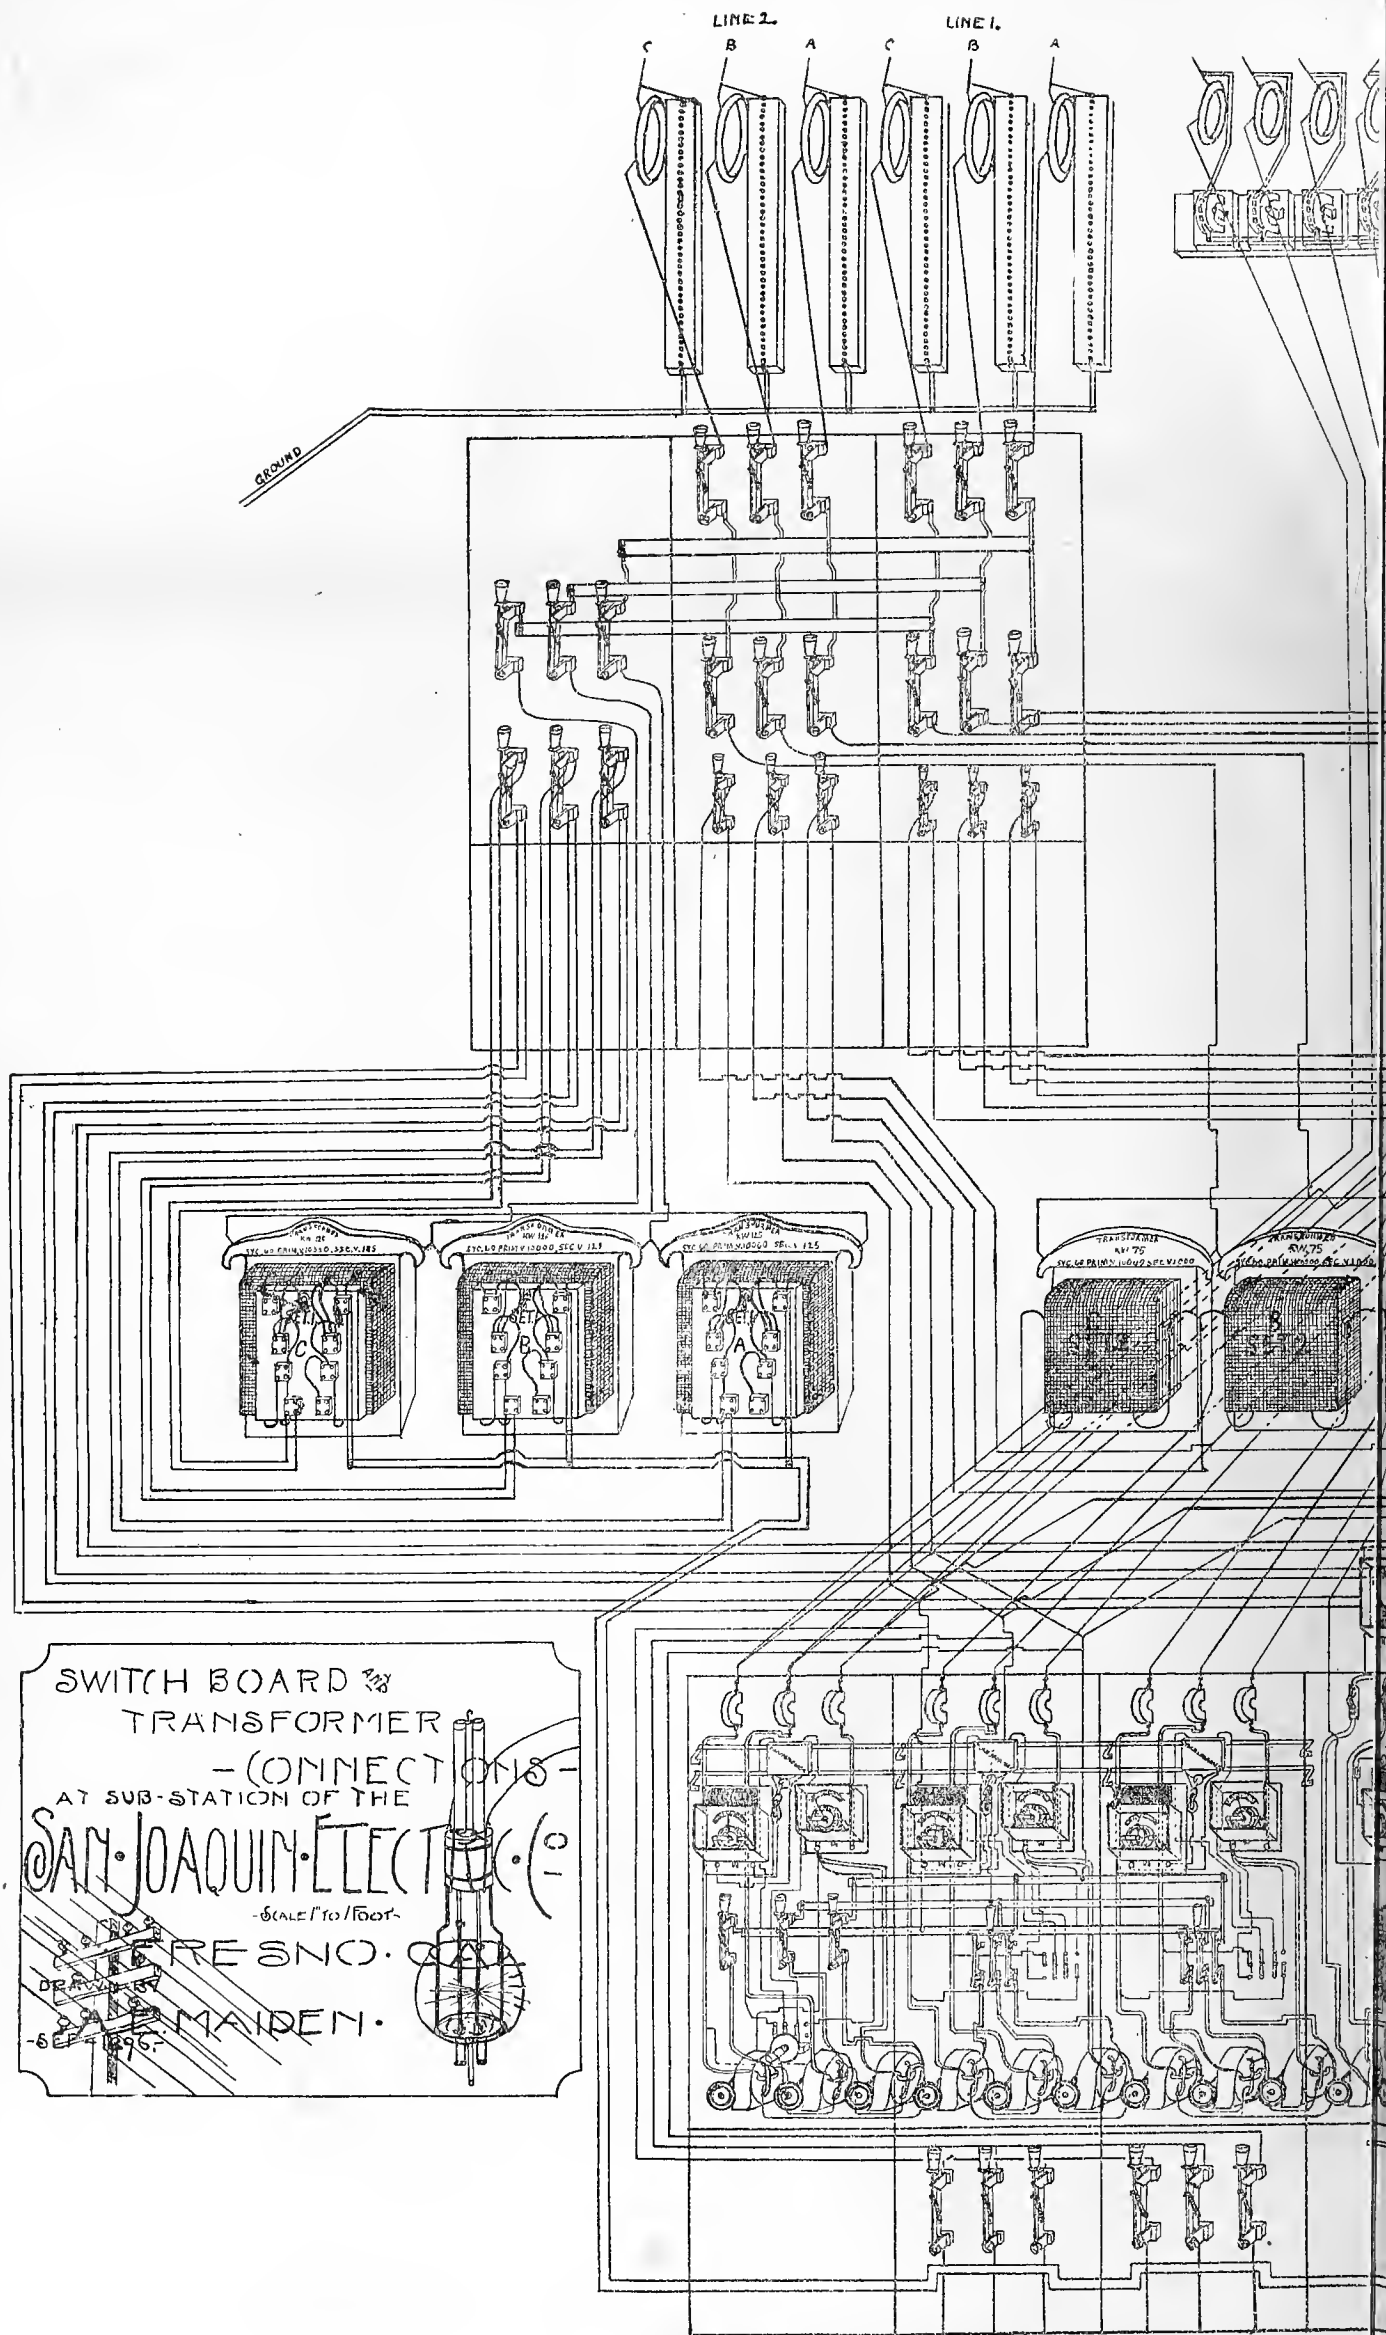 LINE 2.
LINE 1.
C B A C B A
GROUND
TRANSFORMER
KW 125
SYC. 60 PRIM. V. 10000, SEC. V. 125
TRANSFORMER
KW 125
SYC. 60 PRIM V 10000, SEC V 125
TRANSFORMER
KW 125
SYC. 60 PRIM. V. 10000 SEC. V 125
TRANSFORMER
KW 75
SYC. 60 PRIM. V. 10000 SEC V 1000
TRANSFORMER
KW. 75
SYC. 60. PRIM. V. 10000. SEC. V. 1000
SET 1
C
SET 1
B
SET 1
A
C
SET 2
B
SET 2
SWITCH BOARD AND
TRANSFORMER
-CONNECTIONS-
AT SUB-STATION OF THE
SAN·JOAQUIN·ELECTRIC·CO
-SCALE 1" TO 1 FOOT-
FRESNO·CAL
DRAWN BY
MAIDEN.
-SEP-1896.-